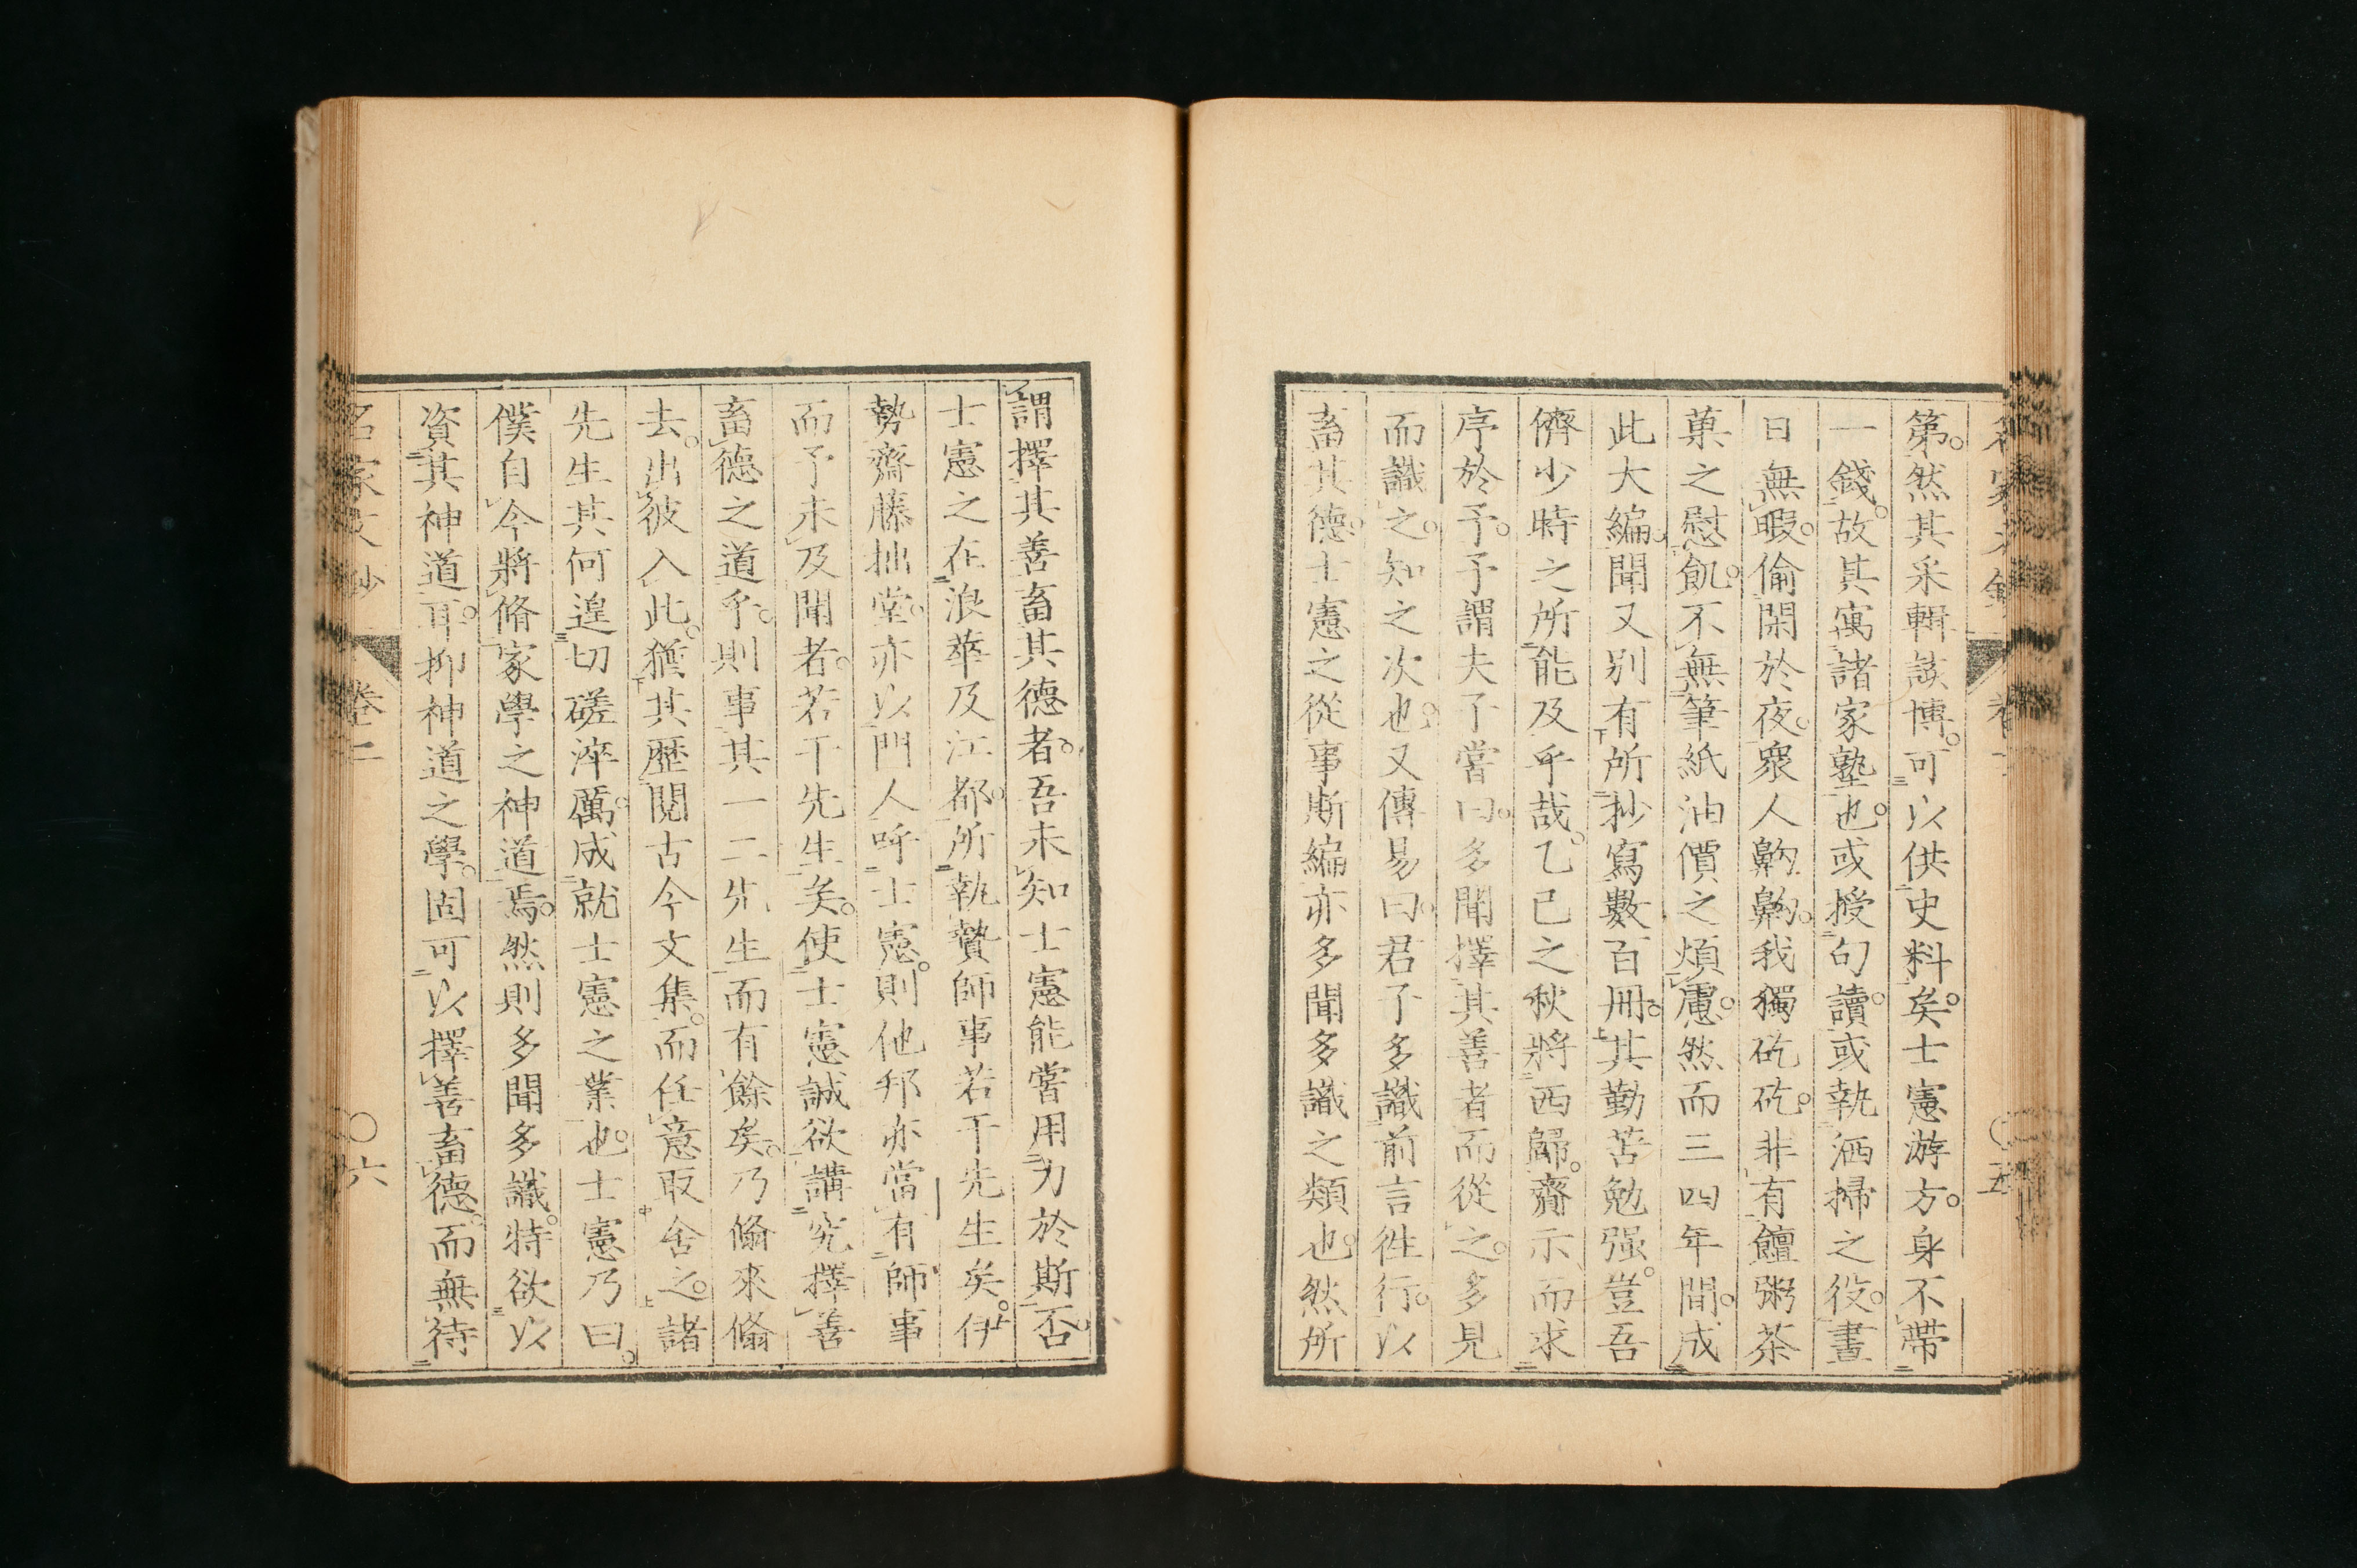 第。然其采輯詼博。可以供史料矣。士憲游方。身不帶
一錢。故其寓諸家塾也。或授句讀。或執洒掃之役。晝
日無暇。偷閑於夜。衆人齁齁。我獨矻矻。非有饘粥茶
菓之慰飢。不無筆紙油價之煩慮。然而三四年間。成
此大編。聞又別有所抄寫數百冊。其勤苦勉强。豈吾
儕少時之所能及乎哉。乙巳之秋將西歸。齎示而求
序於予。予謂夫子嘗曰。多聞擇其善者而從之。多見
而識之。知之次也。又傳易曰。君子多識前言徃行。以
畜其德。士憲之從事斯編亦多聞多識之類也。然所
謂擇其善畜其德者。吾未知士憲能嘗用力於斯否。
士憲之在浪華及江都。所執贄師事若干先生矣。伊
勢齋藤拙堂。亦以門人呼士憲。則他邦亦當有師事
而予未及聞者。若干先生矣。使士憲誠欲講究擇善
畜德之道乎。則事其一二先生而有餘矣。乃翛來翛
去。出彼入此。猶其歷閱古今文集。而任意取舍之。諸
先生其何遑切磋淬厲。成就士憲之業也。士憲乃曰。
僕自今將脩家學之神道焉。然則多聞多識。特欲以
資其神道耳。抑神道之學。固可以擇善畜德。而無待
名家文抄 卷二 〇六